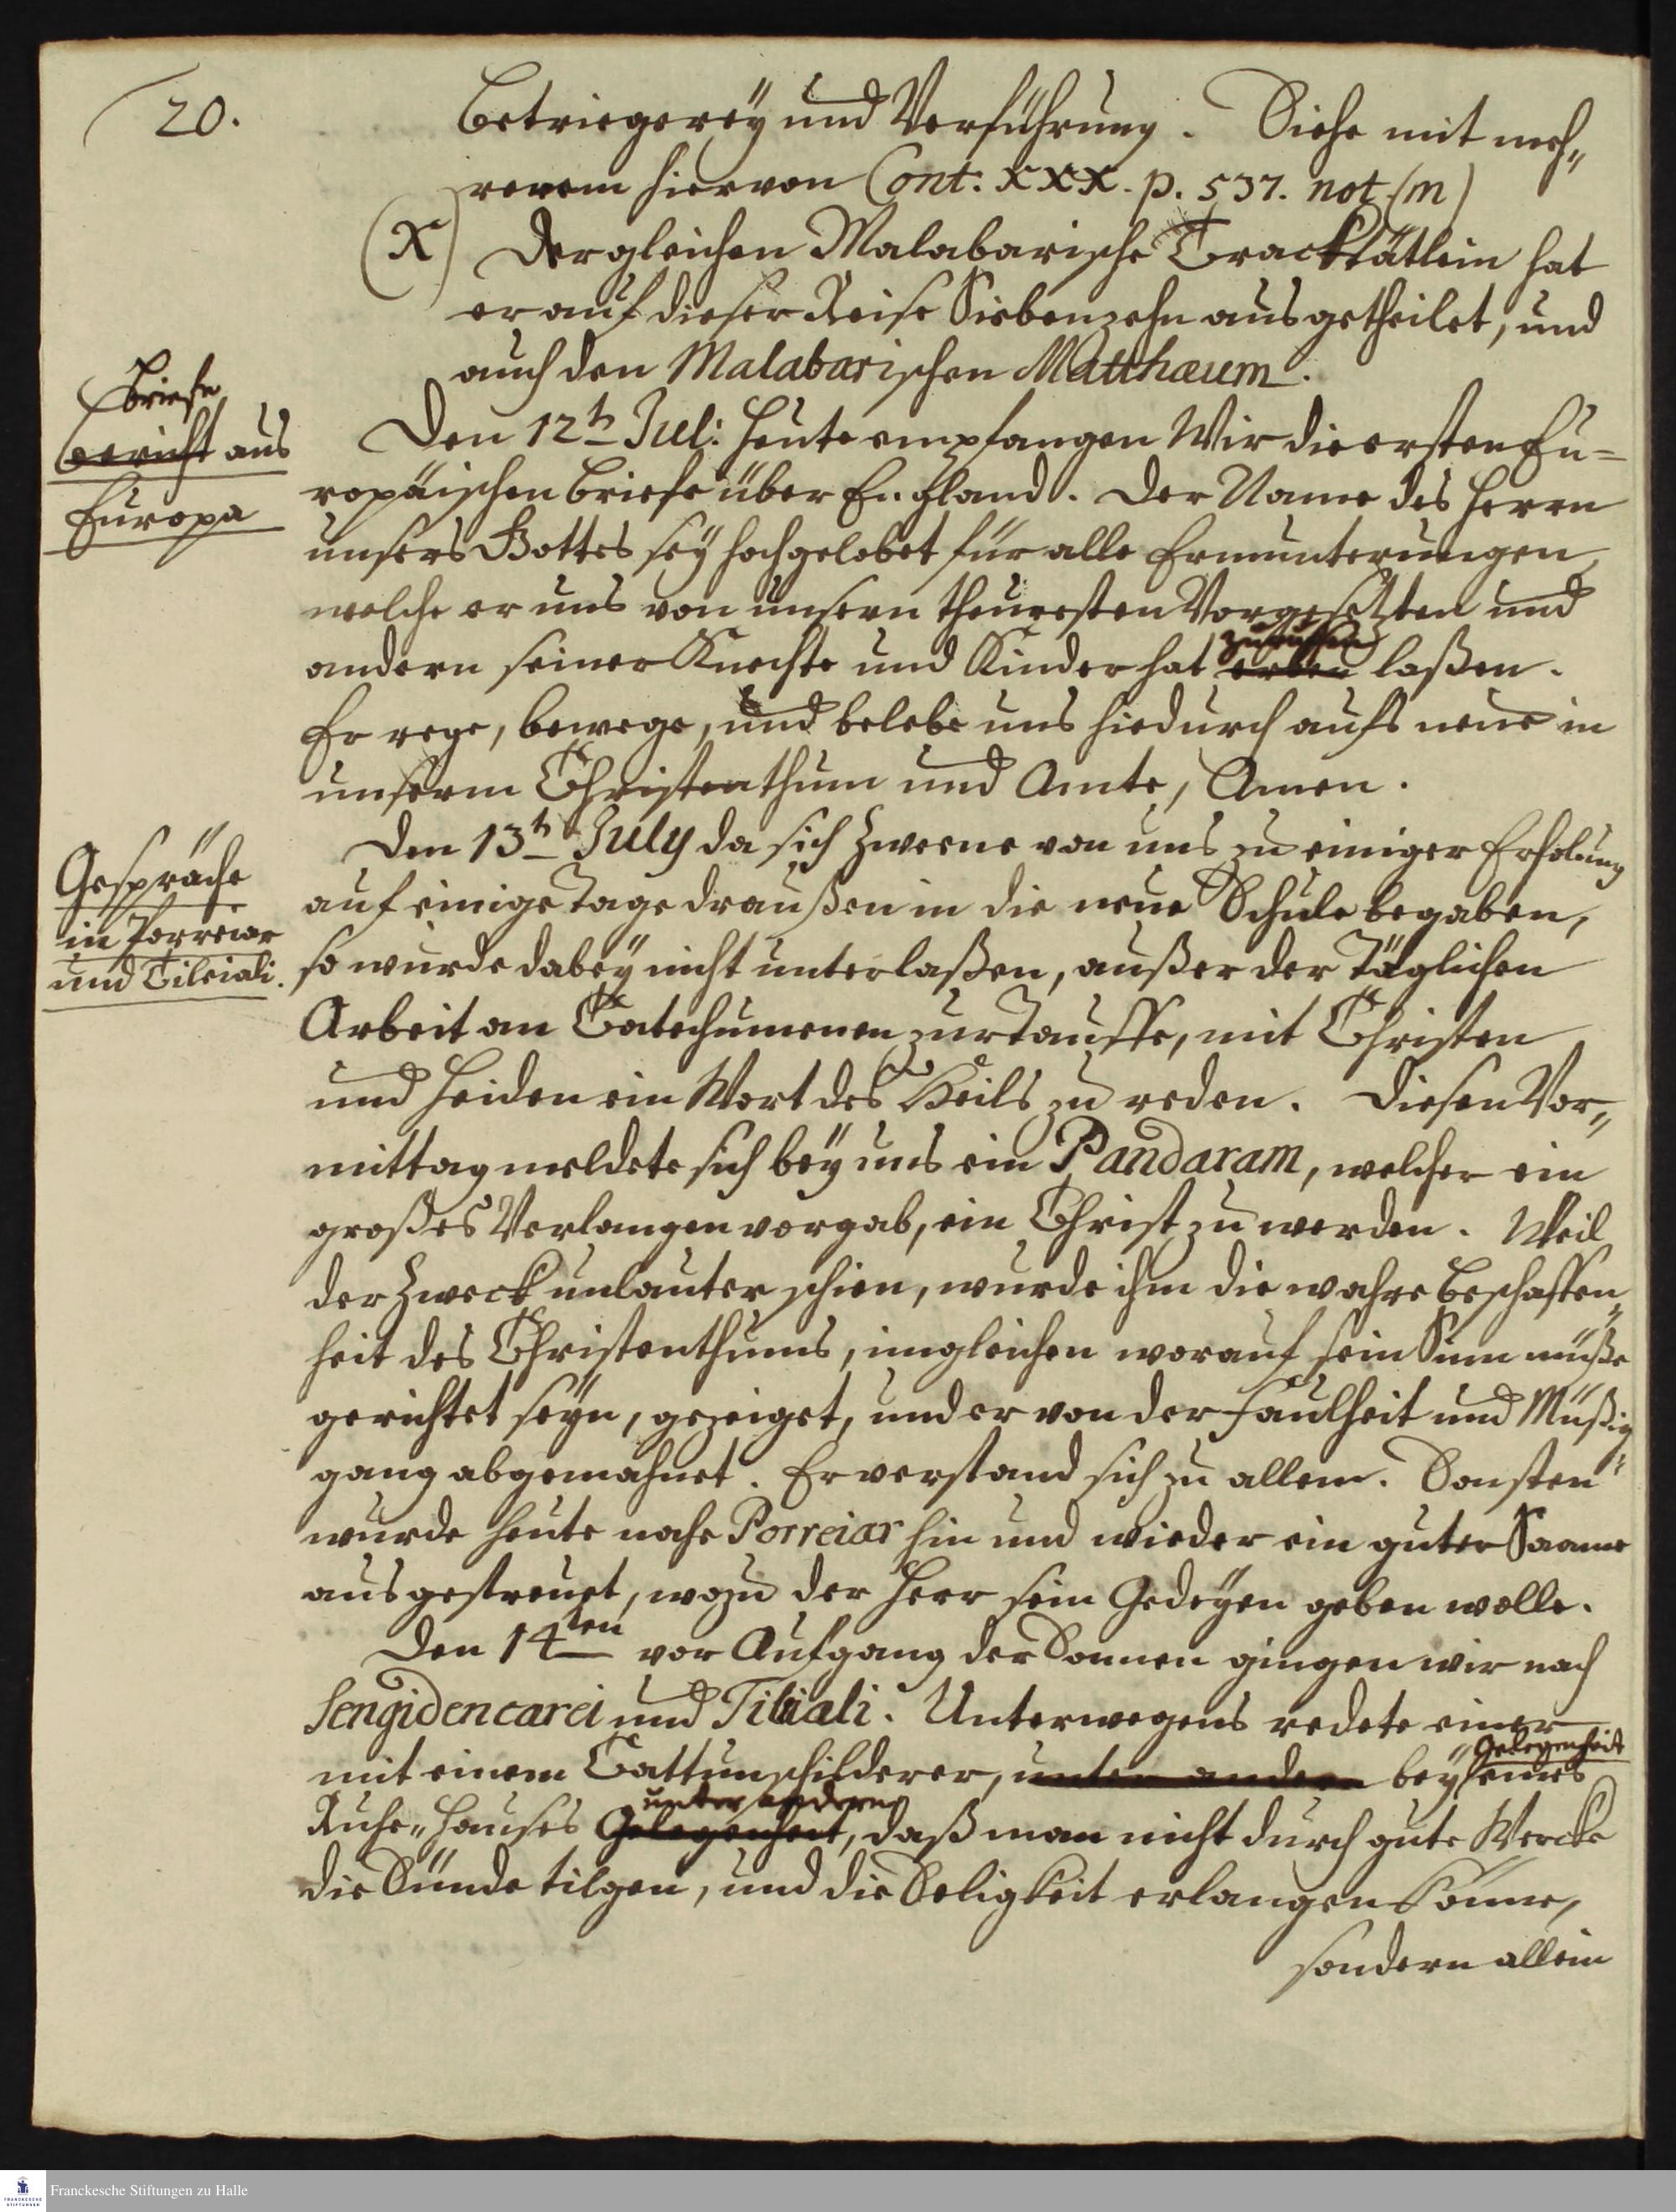 20.
Betriegereÿ und Verführung. Siehe mit meh„
rerem hiervon Cont: XXX. p. 537. not (m)
(X) Dergleichen Malabarische Tracktätlein hat
er auf dieser Reise Siebenzehn ausgetheilet, und
auch den Malabarischen Matthæum.
Briefe
Bericht aus
Europa
Den 12t Jul: Heute empfangen Wir die ersten Eu=
ropäischen Briefe über England. Der Name des Herrn
unsers Gottes seÿ hochgelobet für alle Ermunterungen,
welche er uns von unsern theuresten Vorgesetzten und
zuruffen
andern seiner Knechte und Kinder hat laßen.
Er rege, bewege, und belebe uns hiedurch aufs neue in
unserm Christenthum und Amte, Amen.
Gespräche
in Porreiar
und Tileiali.
Den 13t July da sich Zweene von uns zu einiger Erholung
auf einige Tage draußen in die neue Schule begaben,
so wurde dabeÿ nicht unterlaßen, außer der Täglichen
Arbeit an Catechumenen zur Tauffe, mit Christen
und Heiden ein Wort des Heils zu reden. Diesen Vor„
mittag meldete sich beÿ uns ein Pandaram, welcher ein
großes Verlangen vorgab, ein Christ zu werden. Weil
der Zweck unlauter schien, wurde ihm die wahre Beschaffen„
heit des Christenthums, imgleichen worauf sein Sinn müße
gerichtet seÿn, gezeiget, und er von der Faulheit und Müßig„
gang abgemahnet. Er verstand sich zu allem. Sonsten
wurde heute nahe Porreiar hin und wieder ein guter Saame
ausgestreuet, wozu der Herr sein Gedeÿen geben wolle.
Den 14ten vor Aufgang der Sonnen gingen wir nach
Sengidencarei und Tiliali. Unterwegens redete einer
Gelegenheit
mit einem Cattunschilderer, unter andern beÿ eines
unter andern
Ruhe„Hauses Gelegenheit, daß man nicht durch gute Wercke
die Sünde tilgen, und die Seligkeit erlangen könne,
sondern allein
Franckesche Stiftungen zu Halle